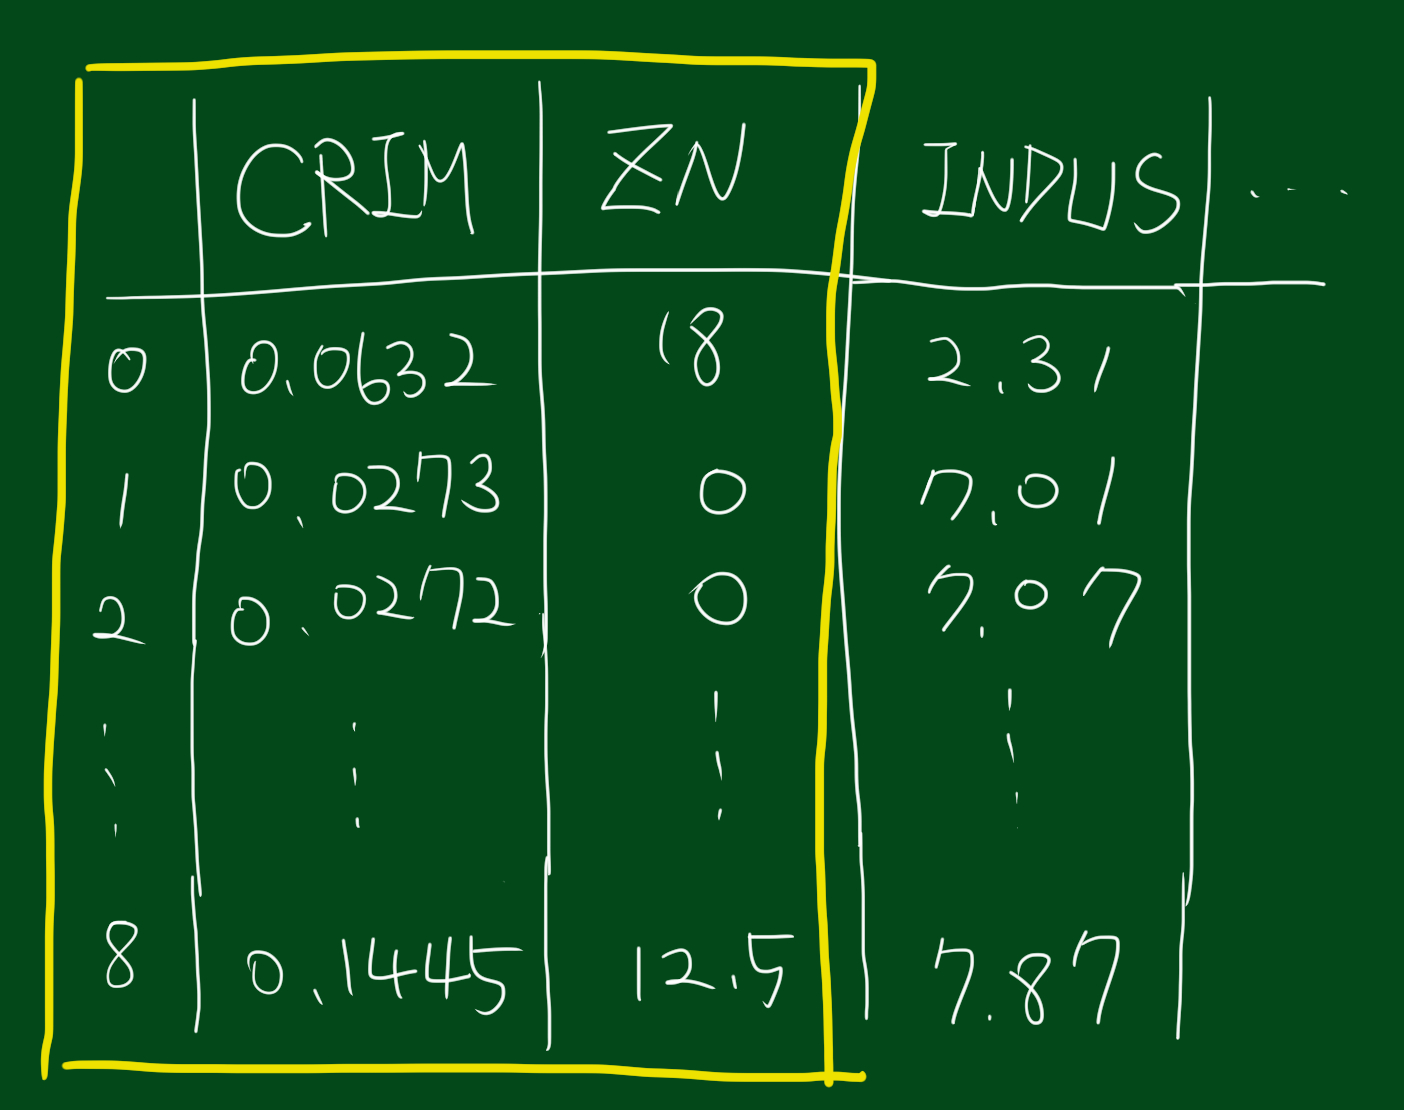 CRIM ZN INDUS ....
0 0.0632 18 2.31
1 0.0273 0 7.01
2 0.0272 0 7.07
8 0.1445 12.5 7.87